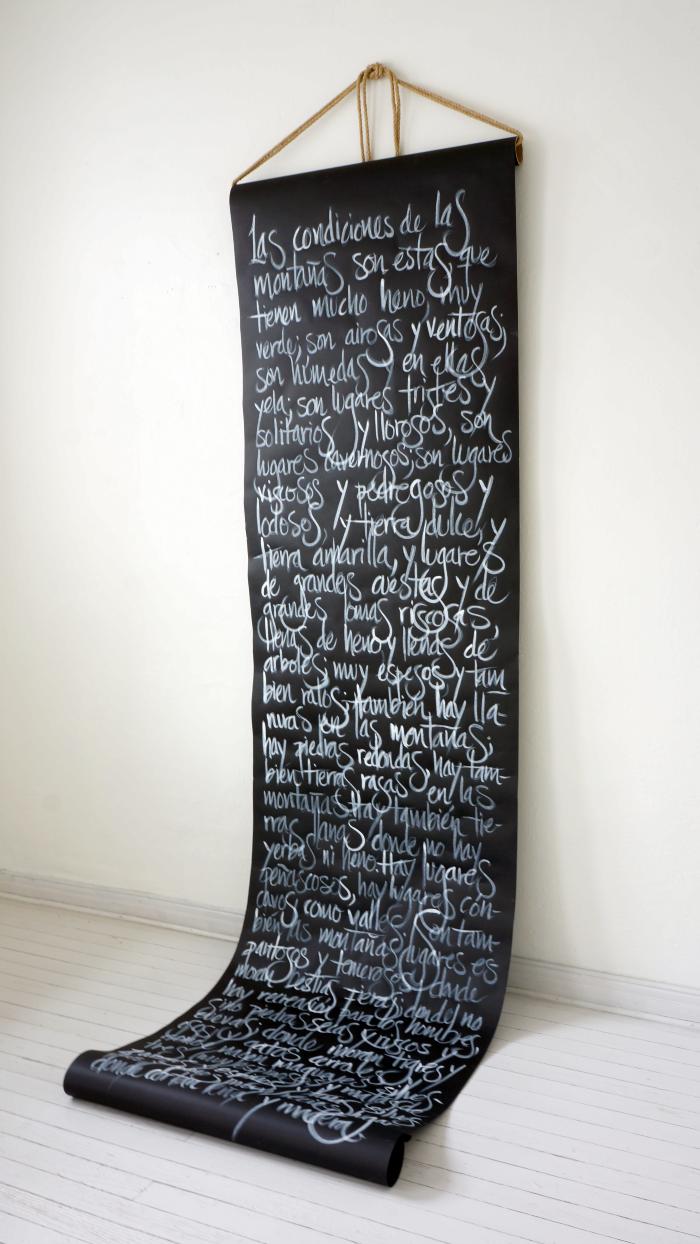 Las condiciones de las
montañas son estas, que
tienen mucho heno muy
verde; son airosas y ventosas;
son húmedas y en ellas
yela; son lugares tristes y
solitarios y llorosos, son
lugares cavernosos; son lugares
riscosos y pedregosos y
lodosos, y tierra dulce, y
tierra amarilla, y lugares
de grandes cuestas y de
grandes lomas riscosas,
llenas de heno y llenas de
arboles; muy espesos y tam
bien ralos; también hay lla-
nuras en las montañas;
hay piedras redondas, hay tam-
bien tierras rasas en las
montañas. Hay también tie-
rras llanas donde no hay
yerbas ni heno. Hay lugares
peñascosos, hay lugares cón-
cavos como valles. Son tam-
bién las montañas lugares es
pantosos y temerosos donde
moran bestias fieras, donde no
hay recreación para los hombres,
sino piedras secas y riscos y
donde moran tigres y
osos y gatos cerval